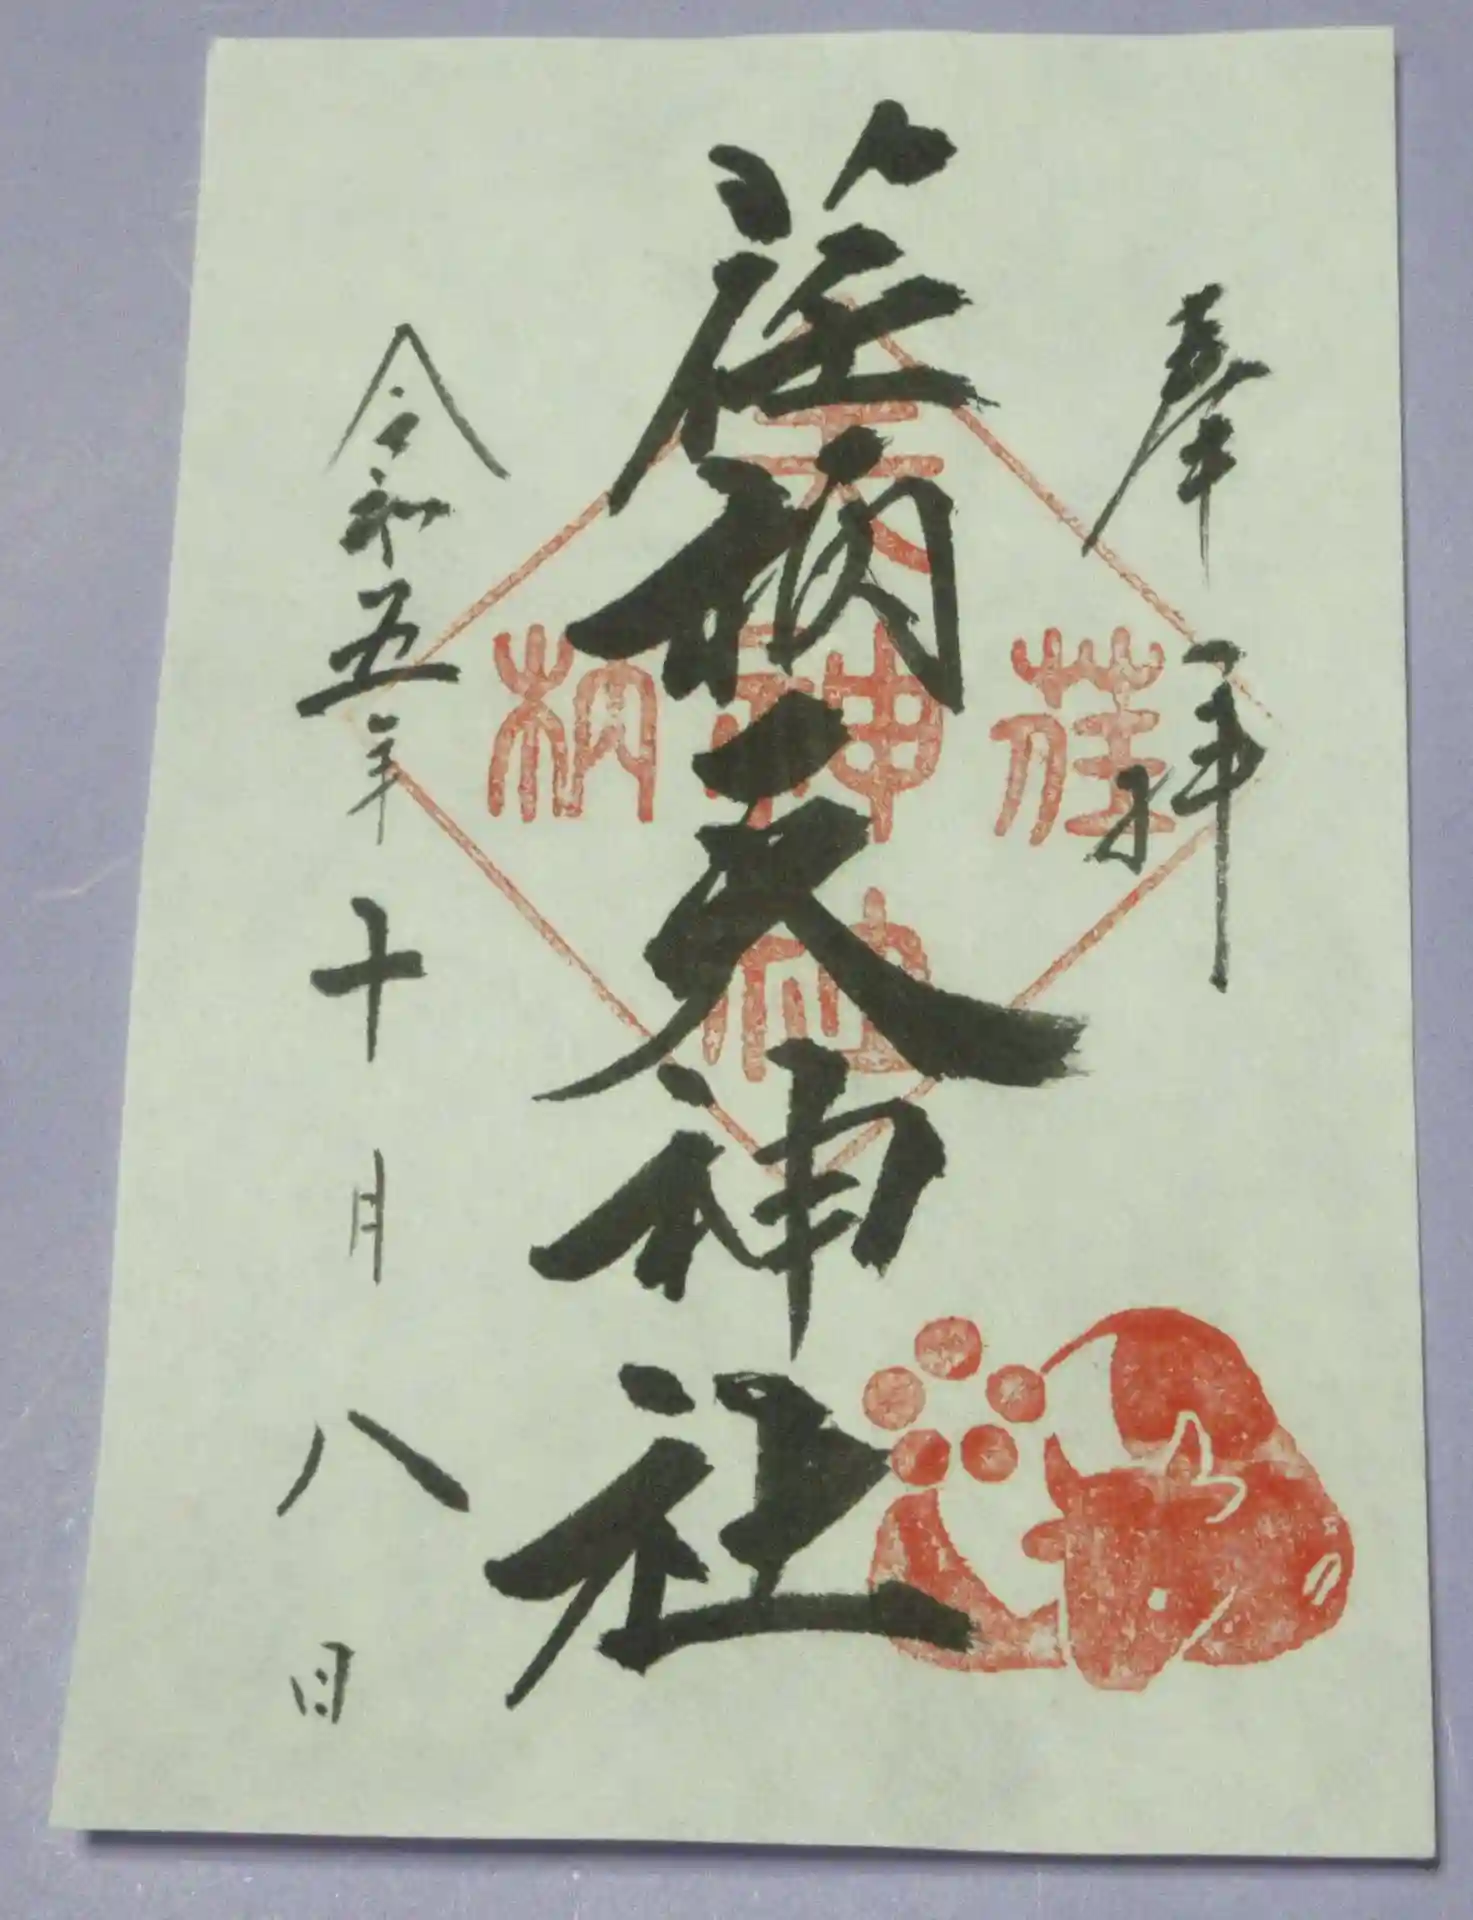 奉拝
荏柄天神社
令和五年十月八日
天
荏
神
柄
社